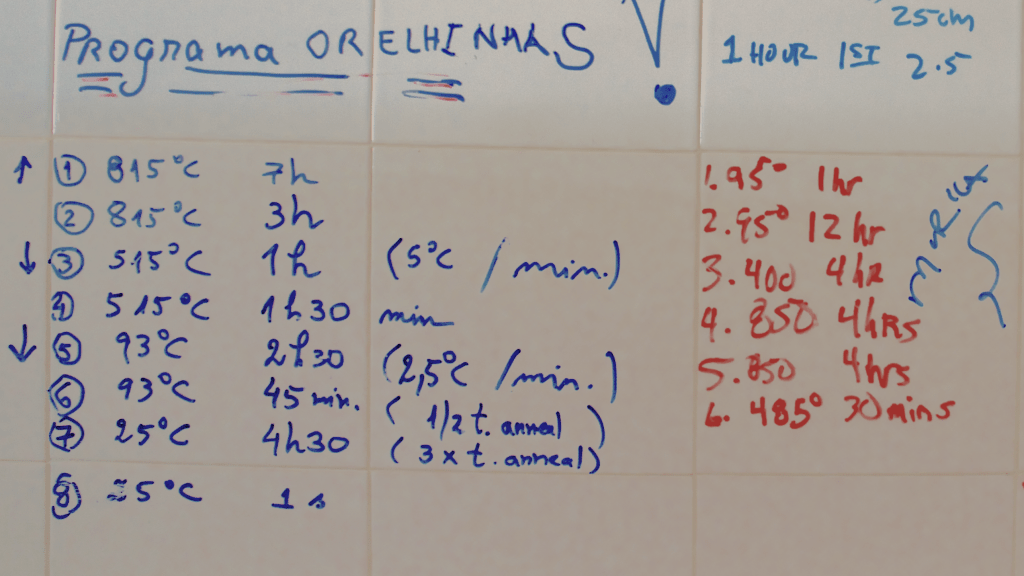 Programa ORELHINHAS !
25cm
1 HOUR 1ST 2.5
↑ ① 815°C 7h
② 815°C 3h
↓ ③ 515°C 1h (5°C / min.)
④ 515°C 1h30 min
↓ ⑤ 93°C 2h30 (2,5°C /min.)
⑥ 93°C 45 min. (1/2 t. anneal)
⑦ 25°C 4h30 (3 x t. anneal)
⑧ 25°C 1 s
1. 95° 1hr
2. 95° 12 hr
3. 400 4hr
4. 850 4hRS
5. 850 4hrs
6. 485° 30mins